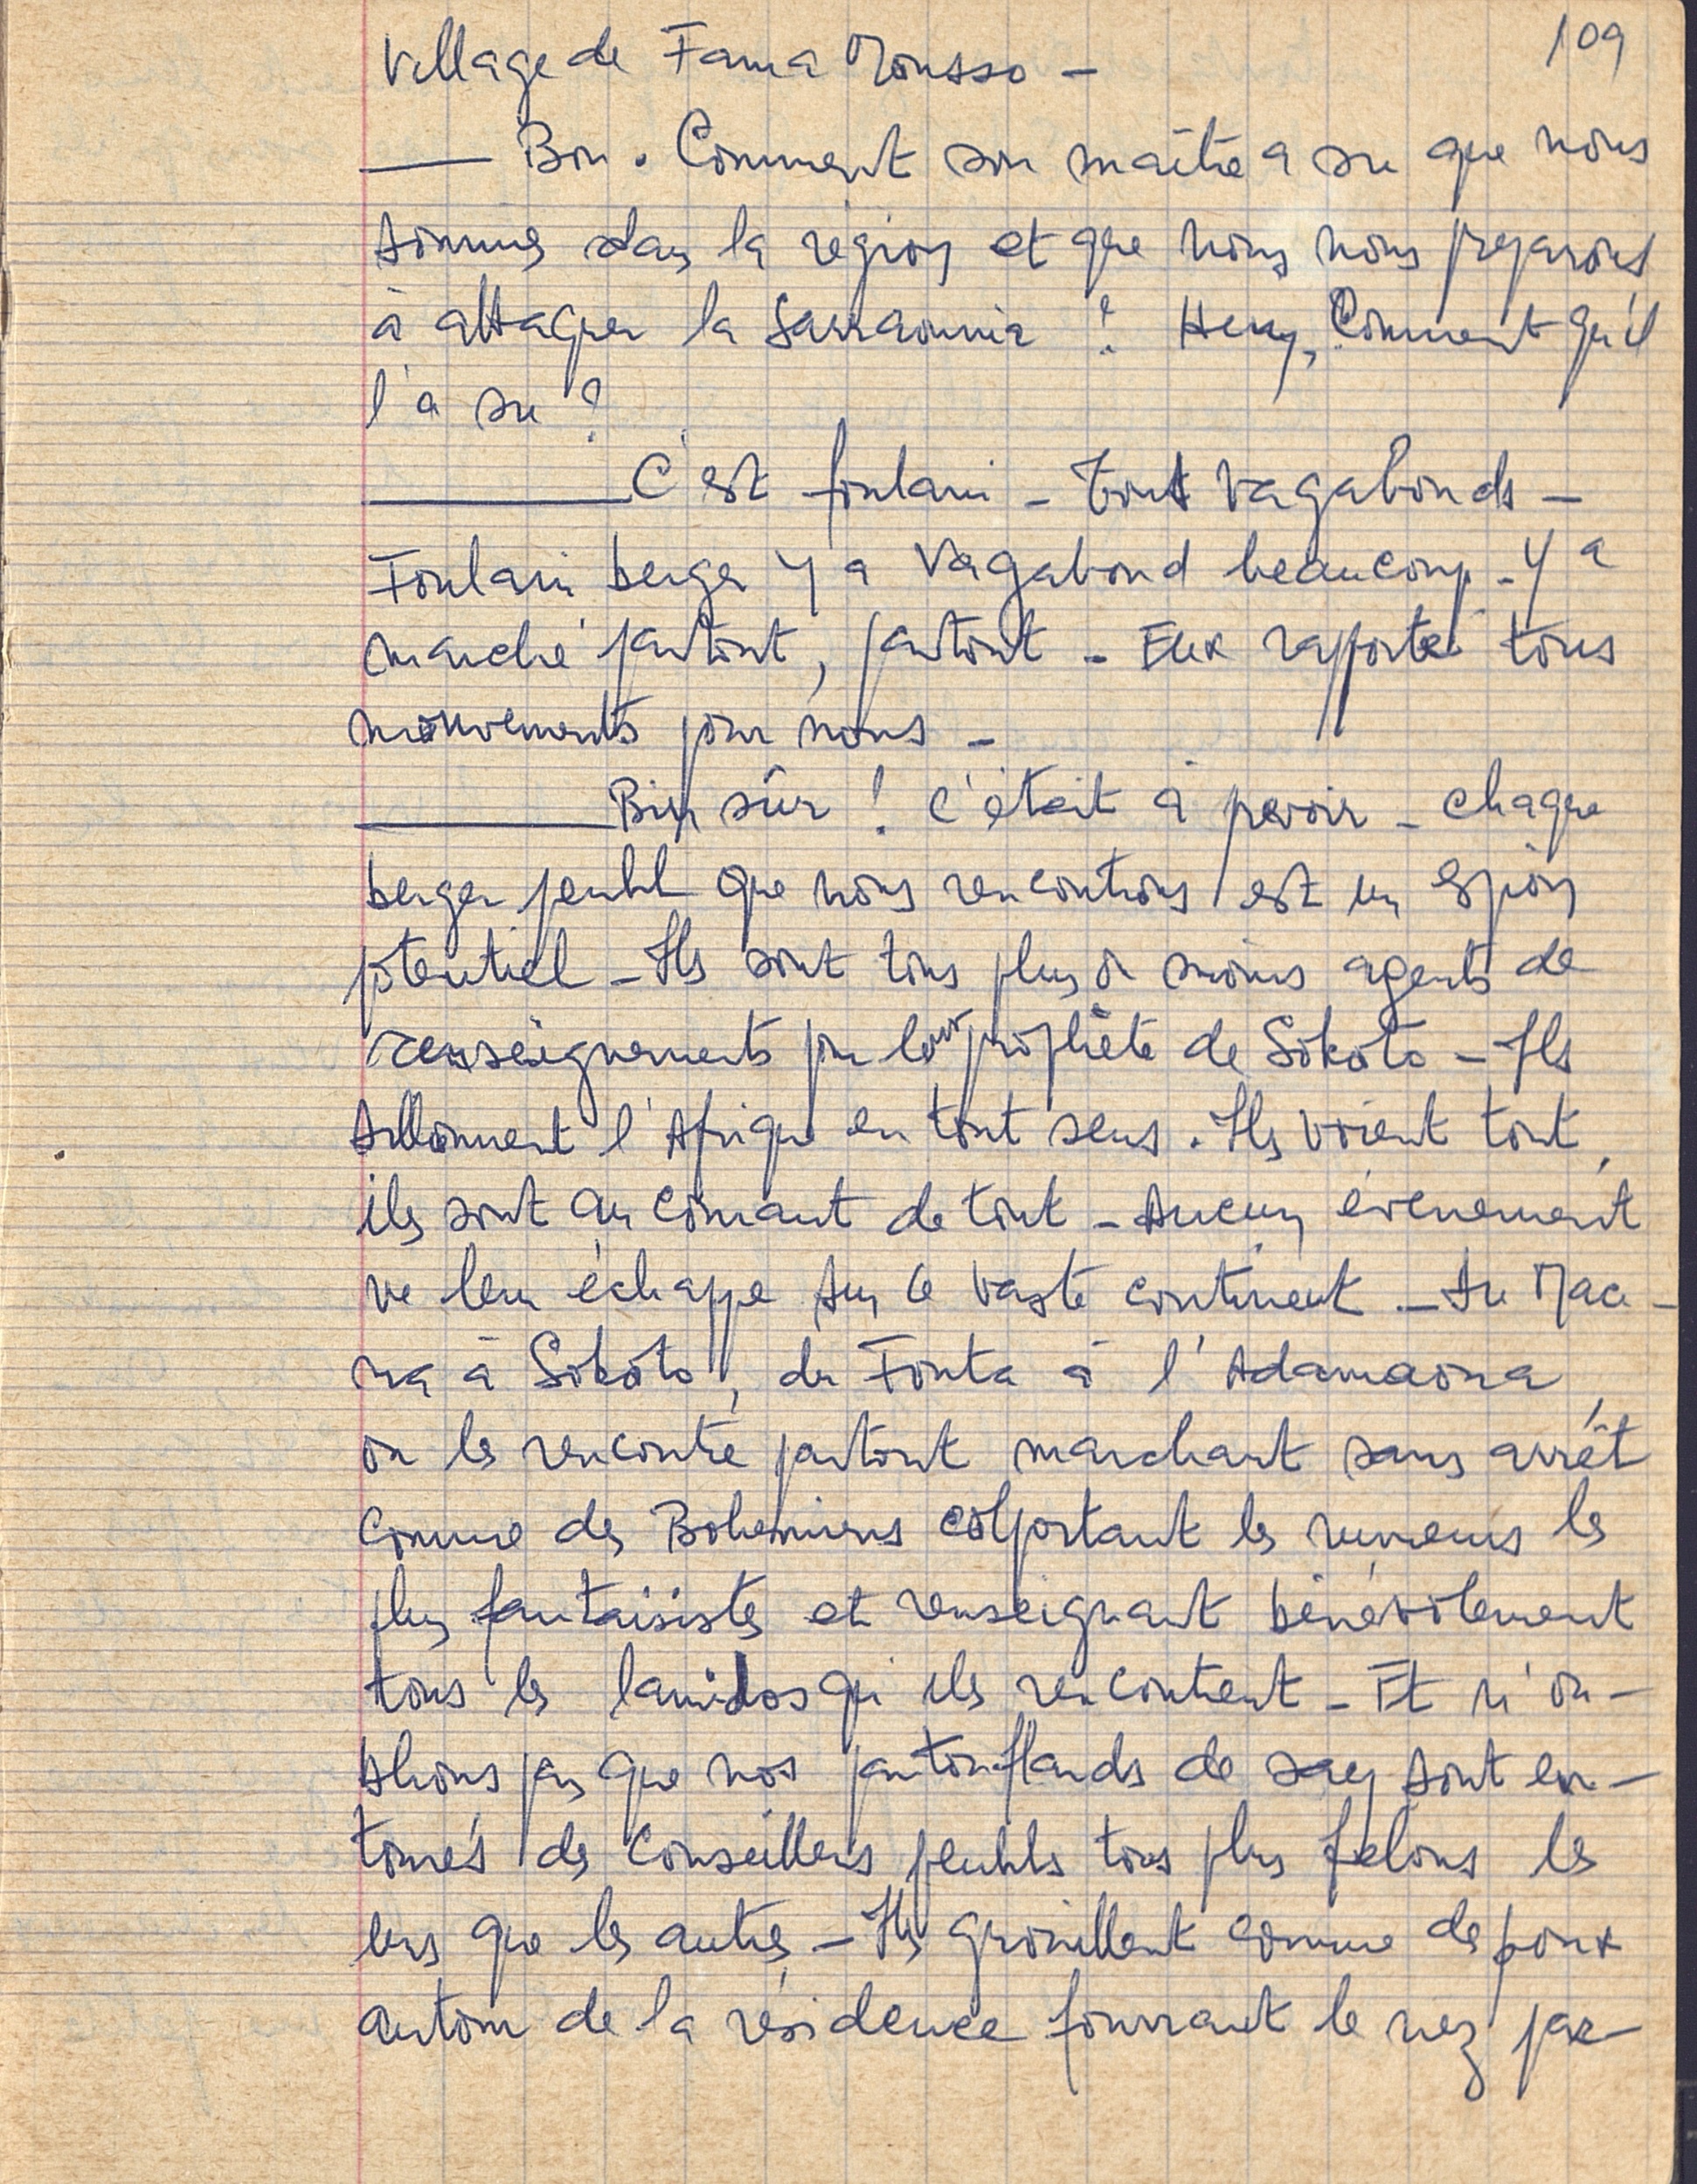 109
Village de Fama Mousso –
—— Bon. Comment son maître a su que nous
sommes dans la région et que nous nous préparons
à attaquer la Sarraounia ? Hein, Comment qu'il
l'a su ?
—— C'est foulani – Tout vagabonds –
Foulani berger y a vagabond beaucoup – Y a
marché partout, partout – Eux rapporté tous
mouvements pour nous –
—— Bien sûr ! C'était à prevoir – Chaque
berger peuhl que nous rencontrons est un espion
potentiel – Ils sont tous plus ou moins agents de
renseignements pour leur prophète de Sokoto – Ils
sillonnent l'Afrique en tout sens. Ils voient tout,
ils sont au courant de tout – Aucun évenement
ne leur échappe sur le vaste continent – Du Maci-
na à Sokoto, du Fouta à l'Adamaoua,
on les rencontre partout marchant sans arrêt
comme des Bohemiens colportant les rumeurs les
plus fantaisistes et renseignant bénévolement
tous les lamidos qu'ils rencontrent – Et n'ou-
blions pas que nos pantouflards de Say sont en-
tourés de Conseillers peuhls tous plus felons les
uns que les autres – Ils grouillent comme des poux
autour de la résidence fourrant le nez par-